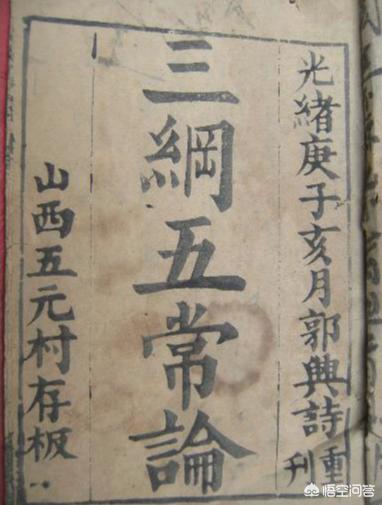 光緒庚子亥月郭興詩重刊
三綱五常論
山西五元村存板
悟空问答